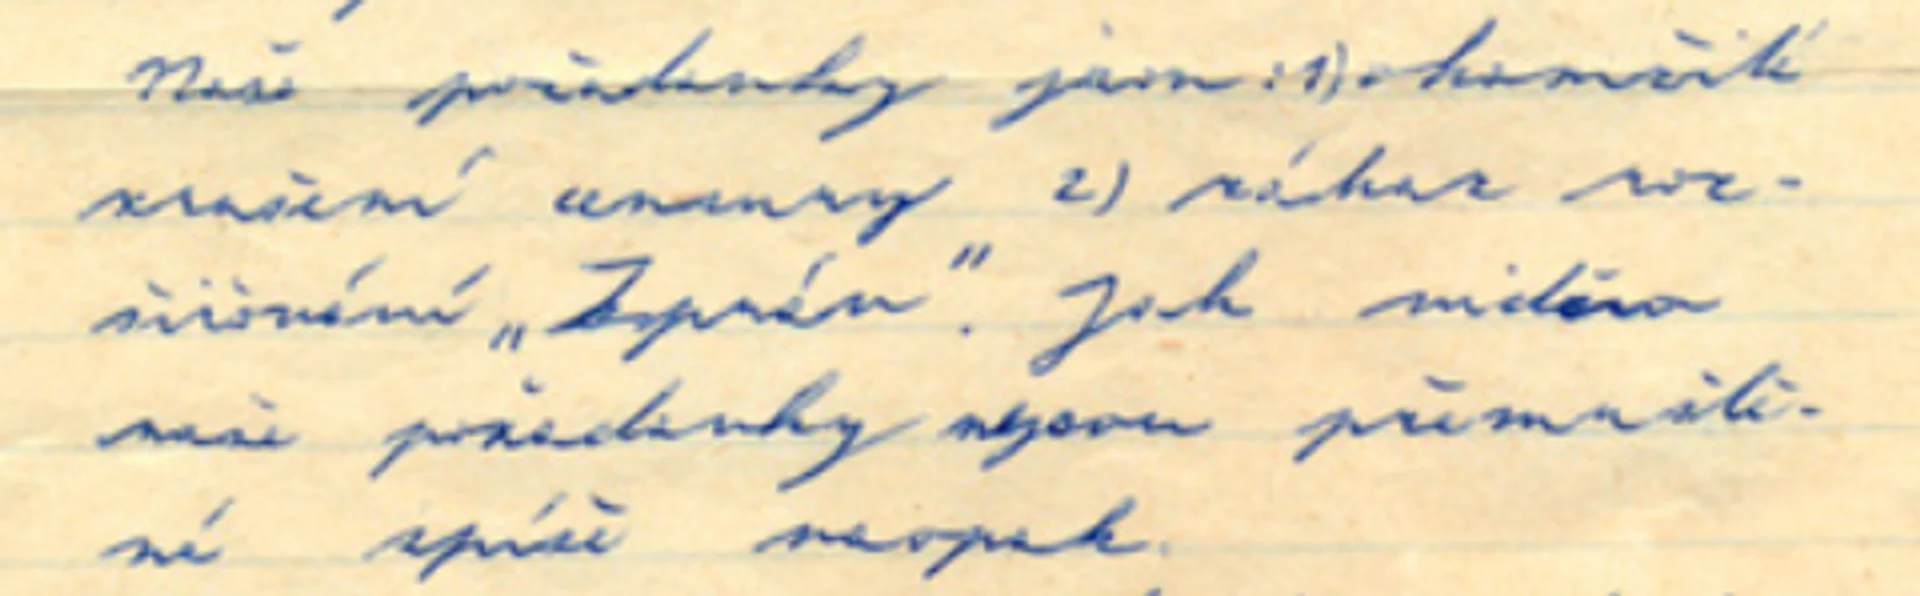 Naše požadavky jsou: 1) okamžité
zrušení cenzury 2) zákaz roz-
šiřování „Zpráv". Jak
naše požadavky nejsou přemrště-
né spíše naopak.